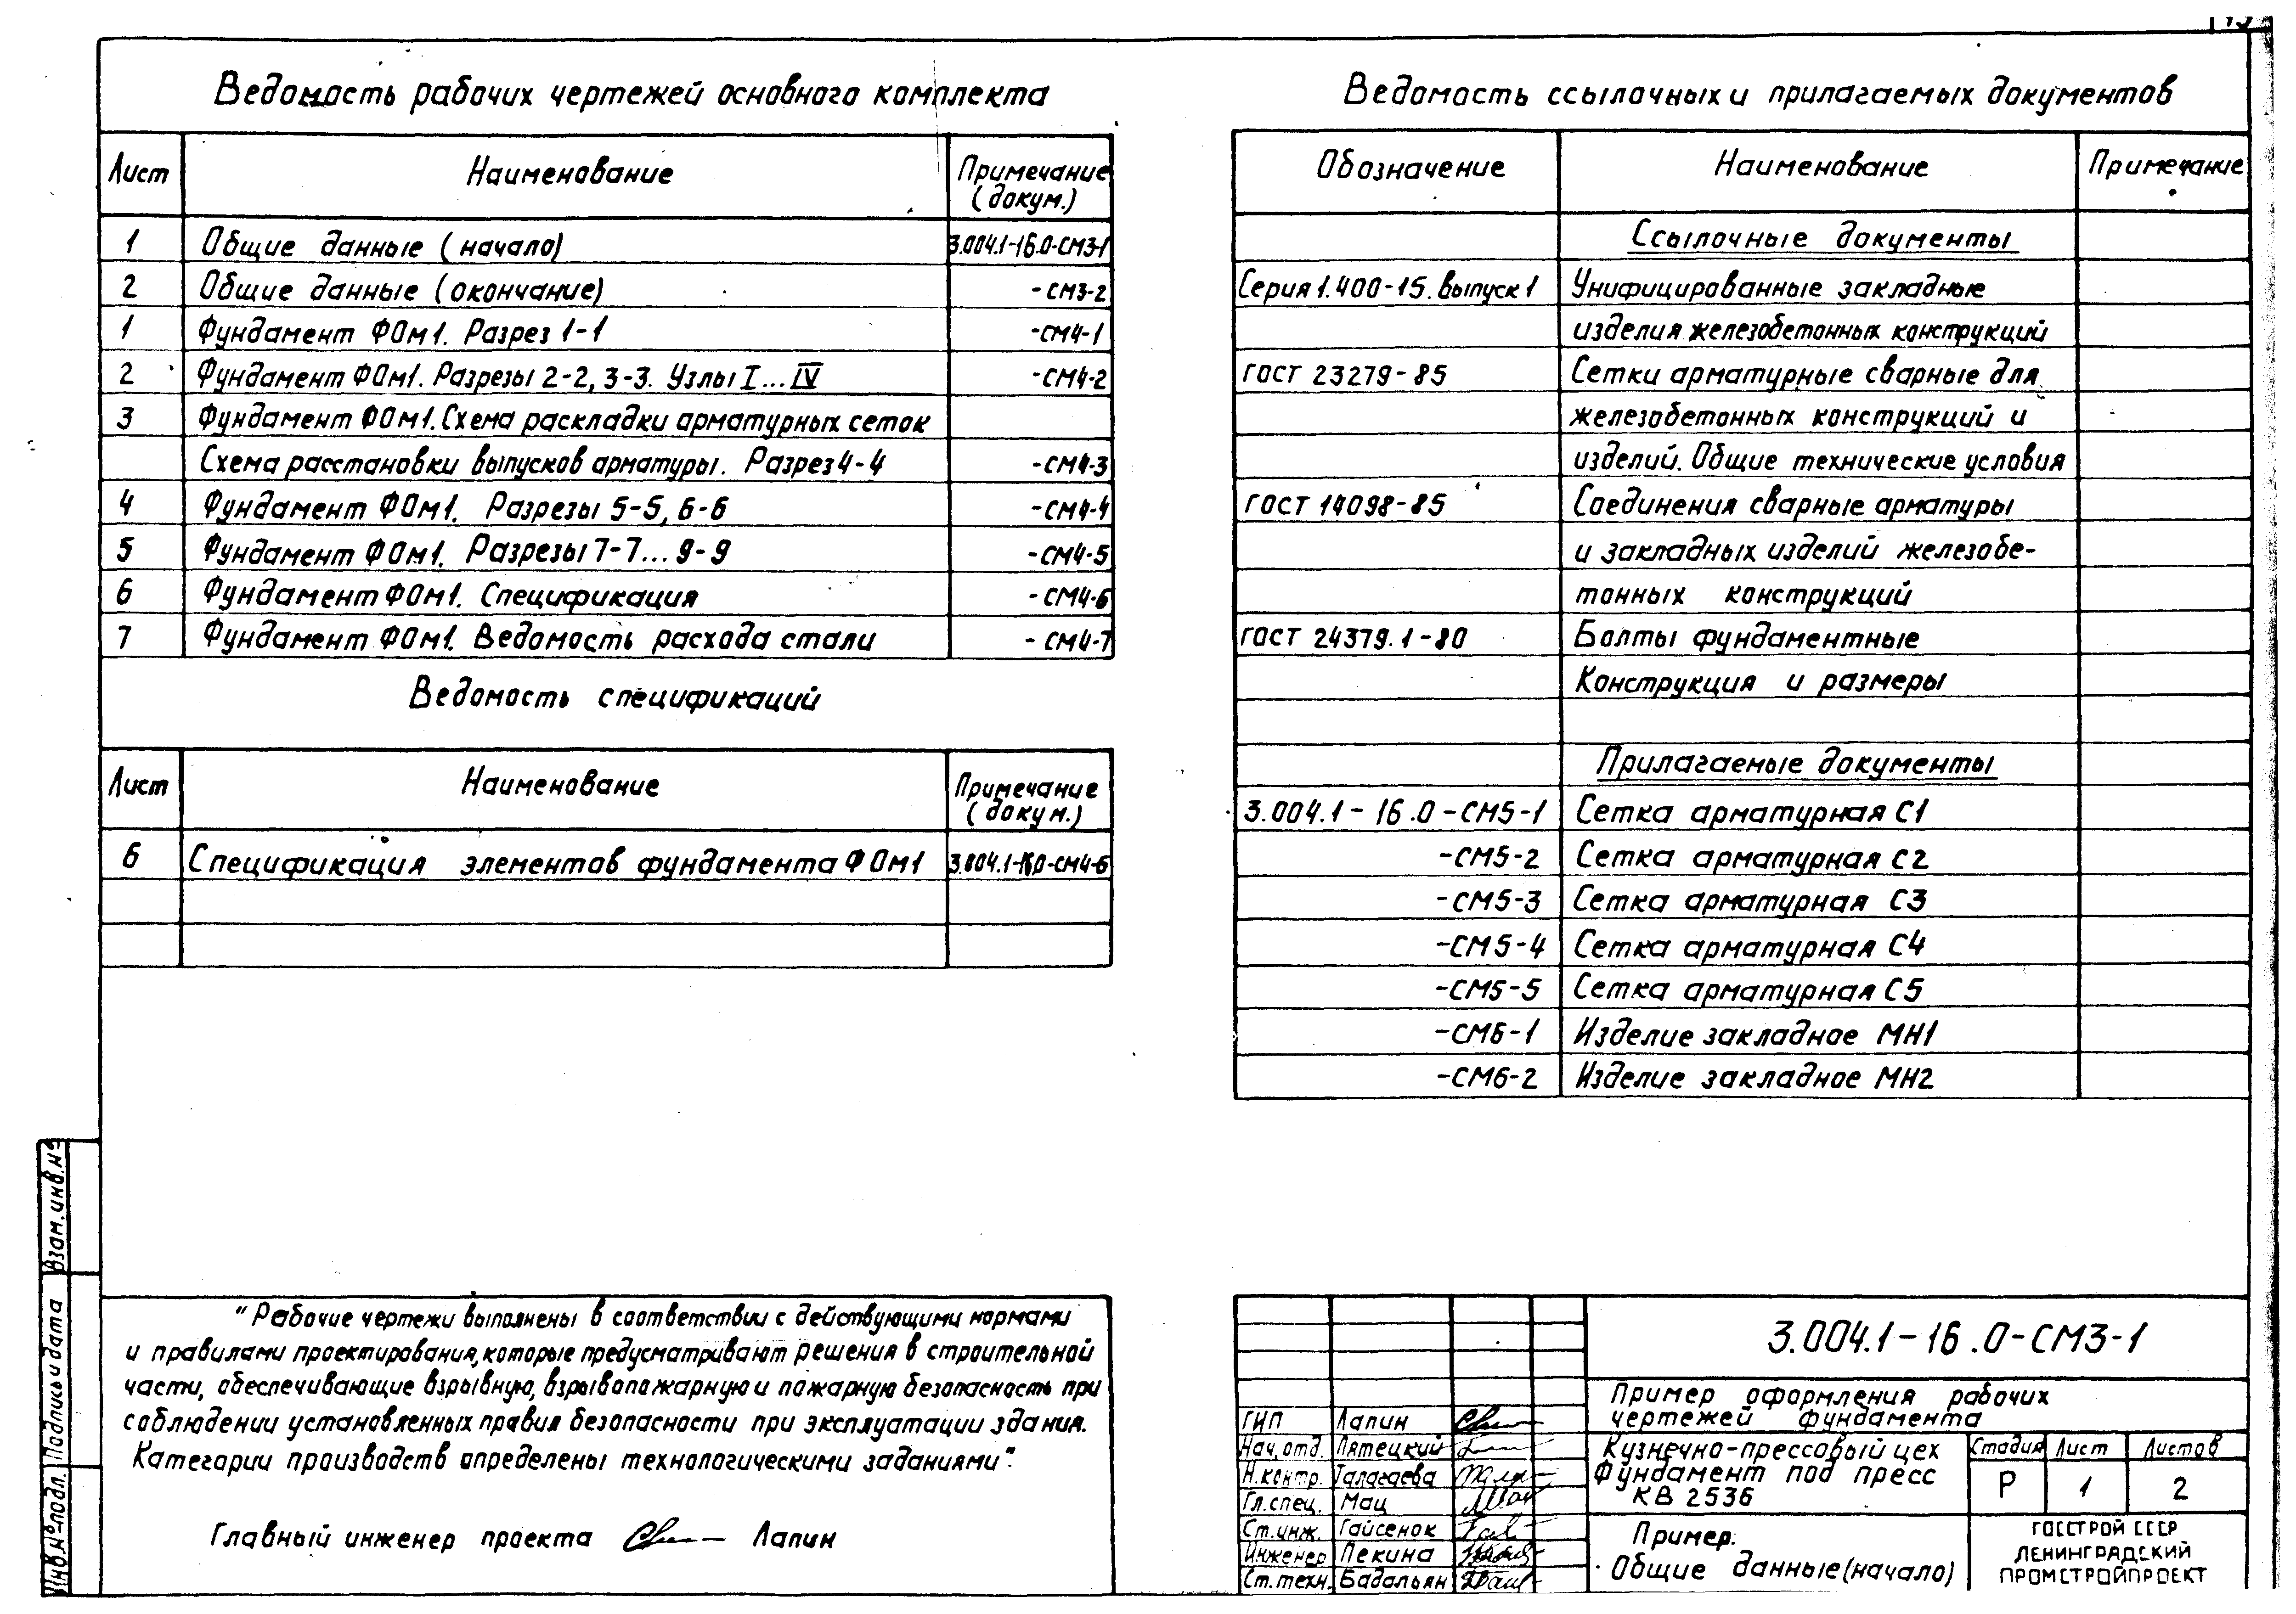 Ведомость рабочих чертежей основного комплекта
Лист Наименование Примечание (докум.)
1 Общие данные (начало) 3.004.1-16.0-СМ3-1
2 Общие данные (окончание) -СМ3-2
1 Фундамент ФОм1. Разрез 1-1 -СМ4-1
2 Фундамент ФОм1. Разрезы 2-2, 3-3. Узлы I...IV -СМ4-2
3 Фундамент ФОм1. Схема раскладки арматурных сеток
Схема расстановки выпусков арматуры. Разрез 4-4 -СМ4-3
4 Фундамент ФОм1. Разрезы 5-5, 6-6 -СМ4-4
5 Фундамент ФОм1. Разрезы 7-7...9-9 -СМ4-5
6 Фундамент ФОм1. Спецификация -СМ4-6
7 Фундамент ФОм1. Ведомость расхода стали -СМ4-7
Ведомость спецификаций
Лист Наименование Примечание (докум.)
6 Спецификация элементов фундамента ФОм1 3.004.1-16.0-СМ4-6
Ведомость ссылочных и прилагаемых документов
Обозначение Наименование Примечание
Ссылочные документы
Серия 1.400-15. Выпуск 1 Унифицированные закладные
изделия железобетонных конструкций
ГОСТ 23279-85 Сетки арматурные сварные для
железобетонных конструкций и
изделий. Общие технические условия
ГОСТ 14098-85 Соединения сварные арматуры
и закладных изделий железобе-
тонных конструкций
ГОСТ 24379.1-80 Болты фундаментные
Конструкция и размеры
Прилагаемые документы
3.004.1-16.0-СМ5-1 Сетка арматурная С1
-СМ5-2 Сетка арматурная С2
-СМ5-3 Сетка арматурная С3
-СМ5-4 Сетка арматурная С4
-СМ5-5 Сетка арматурная С5
-СМ6-1 Изделие закладное МН1
-СМ6-2 Изделие закладное МН2
"Рабочие чертежи выполнены в соответствии с действующими нормами
и правилами проектирования, которые предусматривают решения в строительной
части, обеспечивающие взрывную, взрывопожарную и пожарную безопасность при
соблюдении установленных правил безопасности при эксплуатации здания.
Категории производств определены технологическими заданиями".
Главный инженер проекта Лапин
Взам.инв.№
Подпись и дата
Инв.№ подл.
ГИП Лапин
Нач.отд. Пятецкий
Н.контр. Талагаева
Гл.спец. Мац
Ст.инж. Гайсенок
Инженер Пекина
Ст.техн. Бадальян
3.004.1-16.0-СМ3-1
Пример оформления рабочих
чертежей фундамента
Кузнечно-прессовый цех
Фундамент под пресс
КВ 2536
Стадия Лист Листов
Р 1 2
Пример.
Общие данные (начало)
ГОССТРОЙ СССР
ЛЕНИНГРАДСКИЙ
ПРОМСТРОЙПРОЕКТ